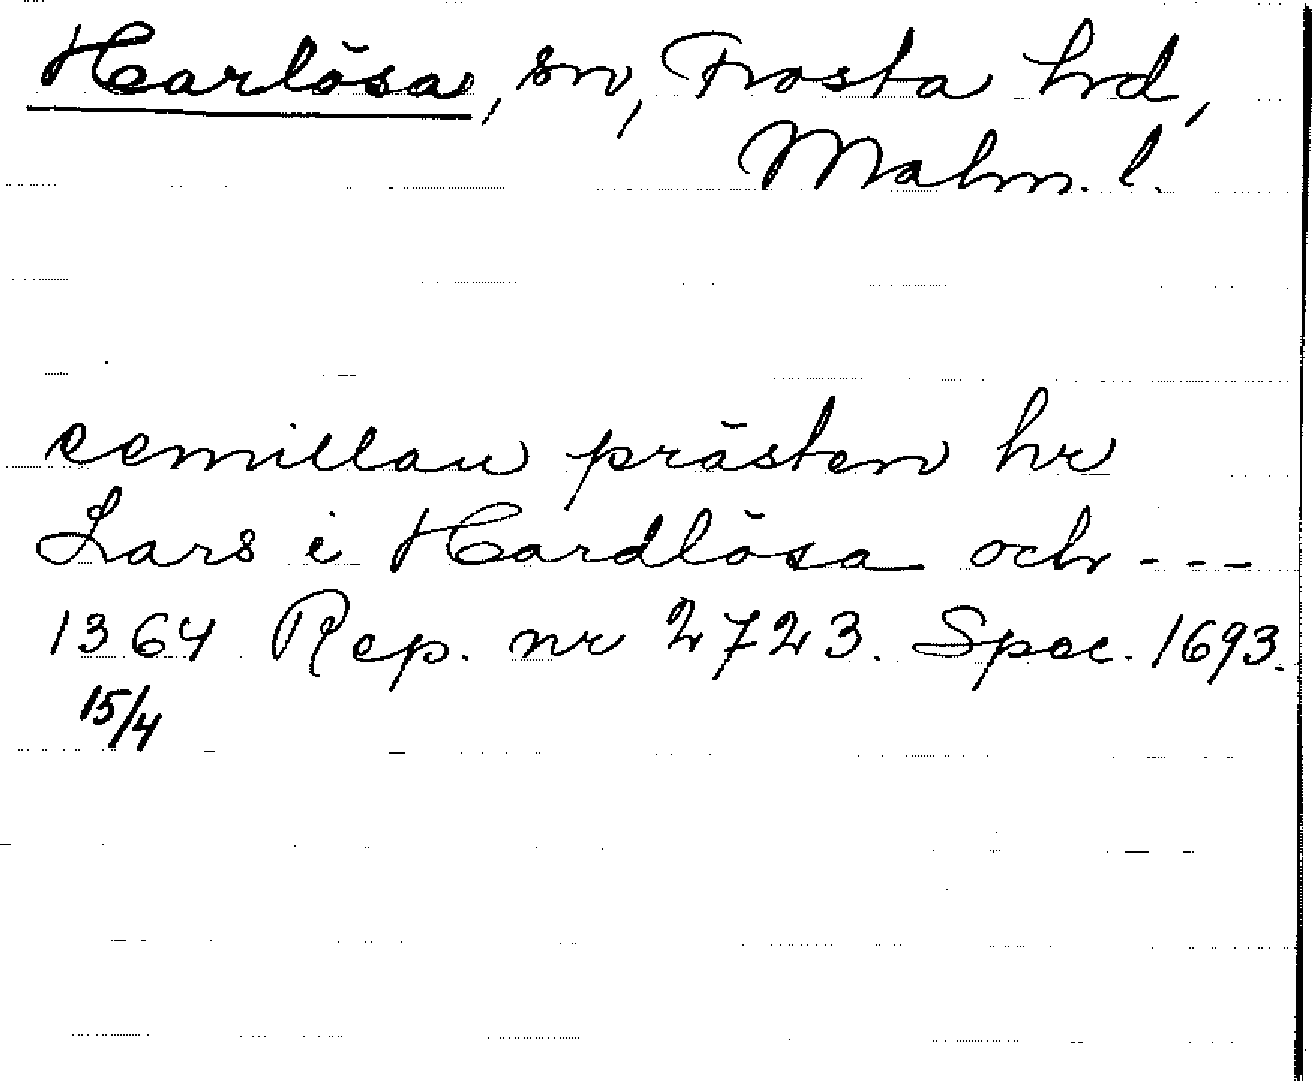 Harlösa, sn, Frosta hrd,
Malm. l.
emillan prästen hr
Lars i Hardlösa och - - -
1364 Rep. nr 2723. Spec. 1693.
15/4